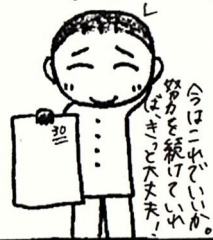 今はこれでいいか。
努力を続けていれ
ば、きっと大丈夫！
30